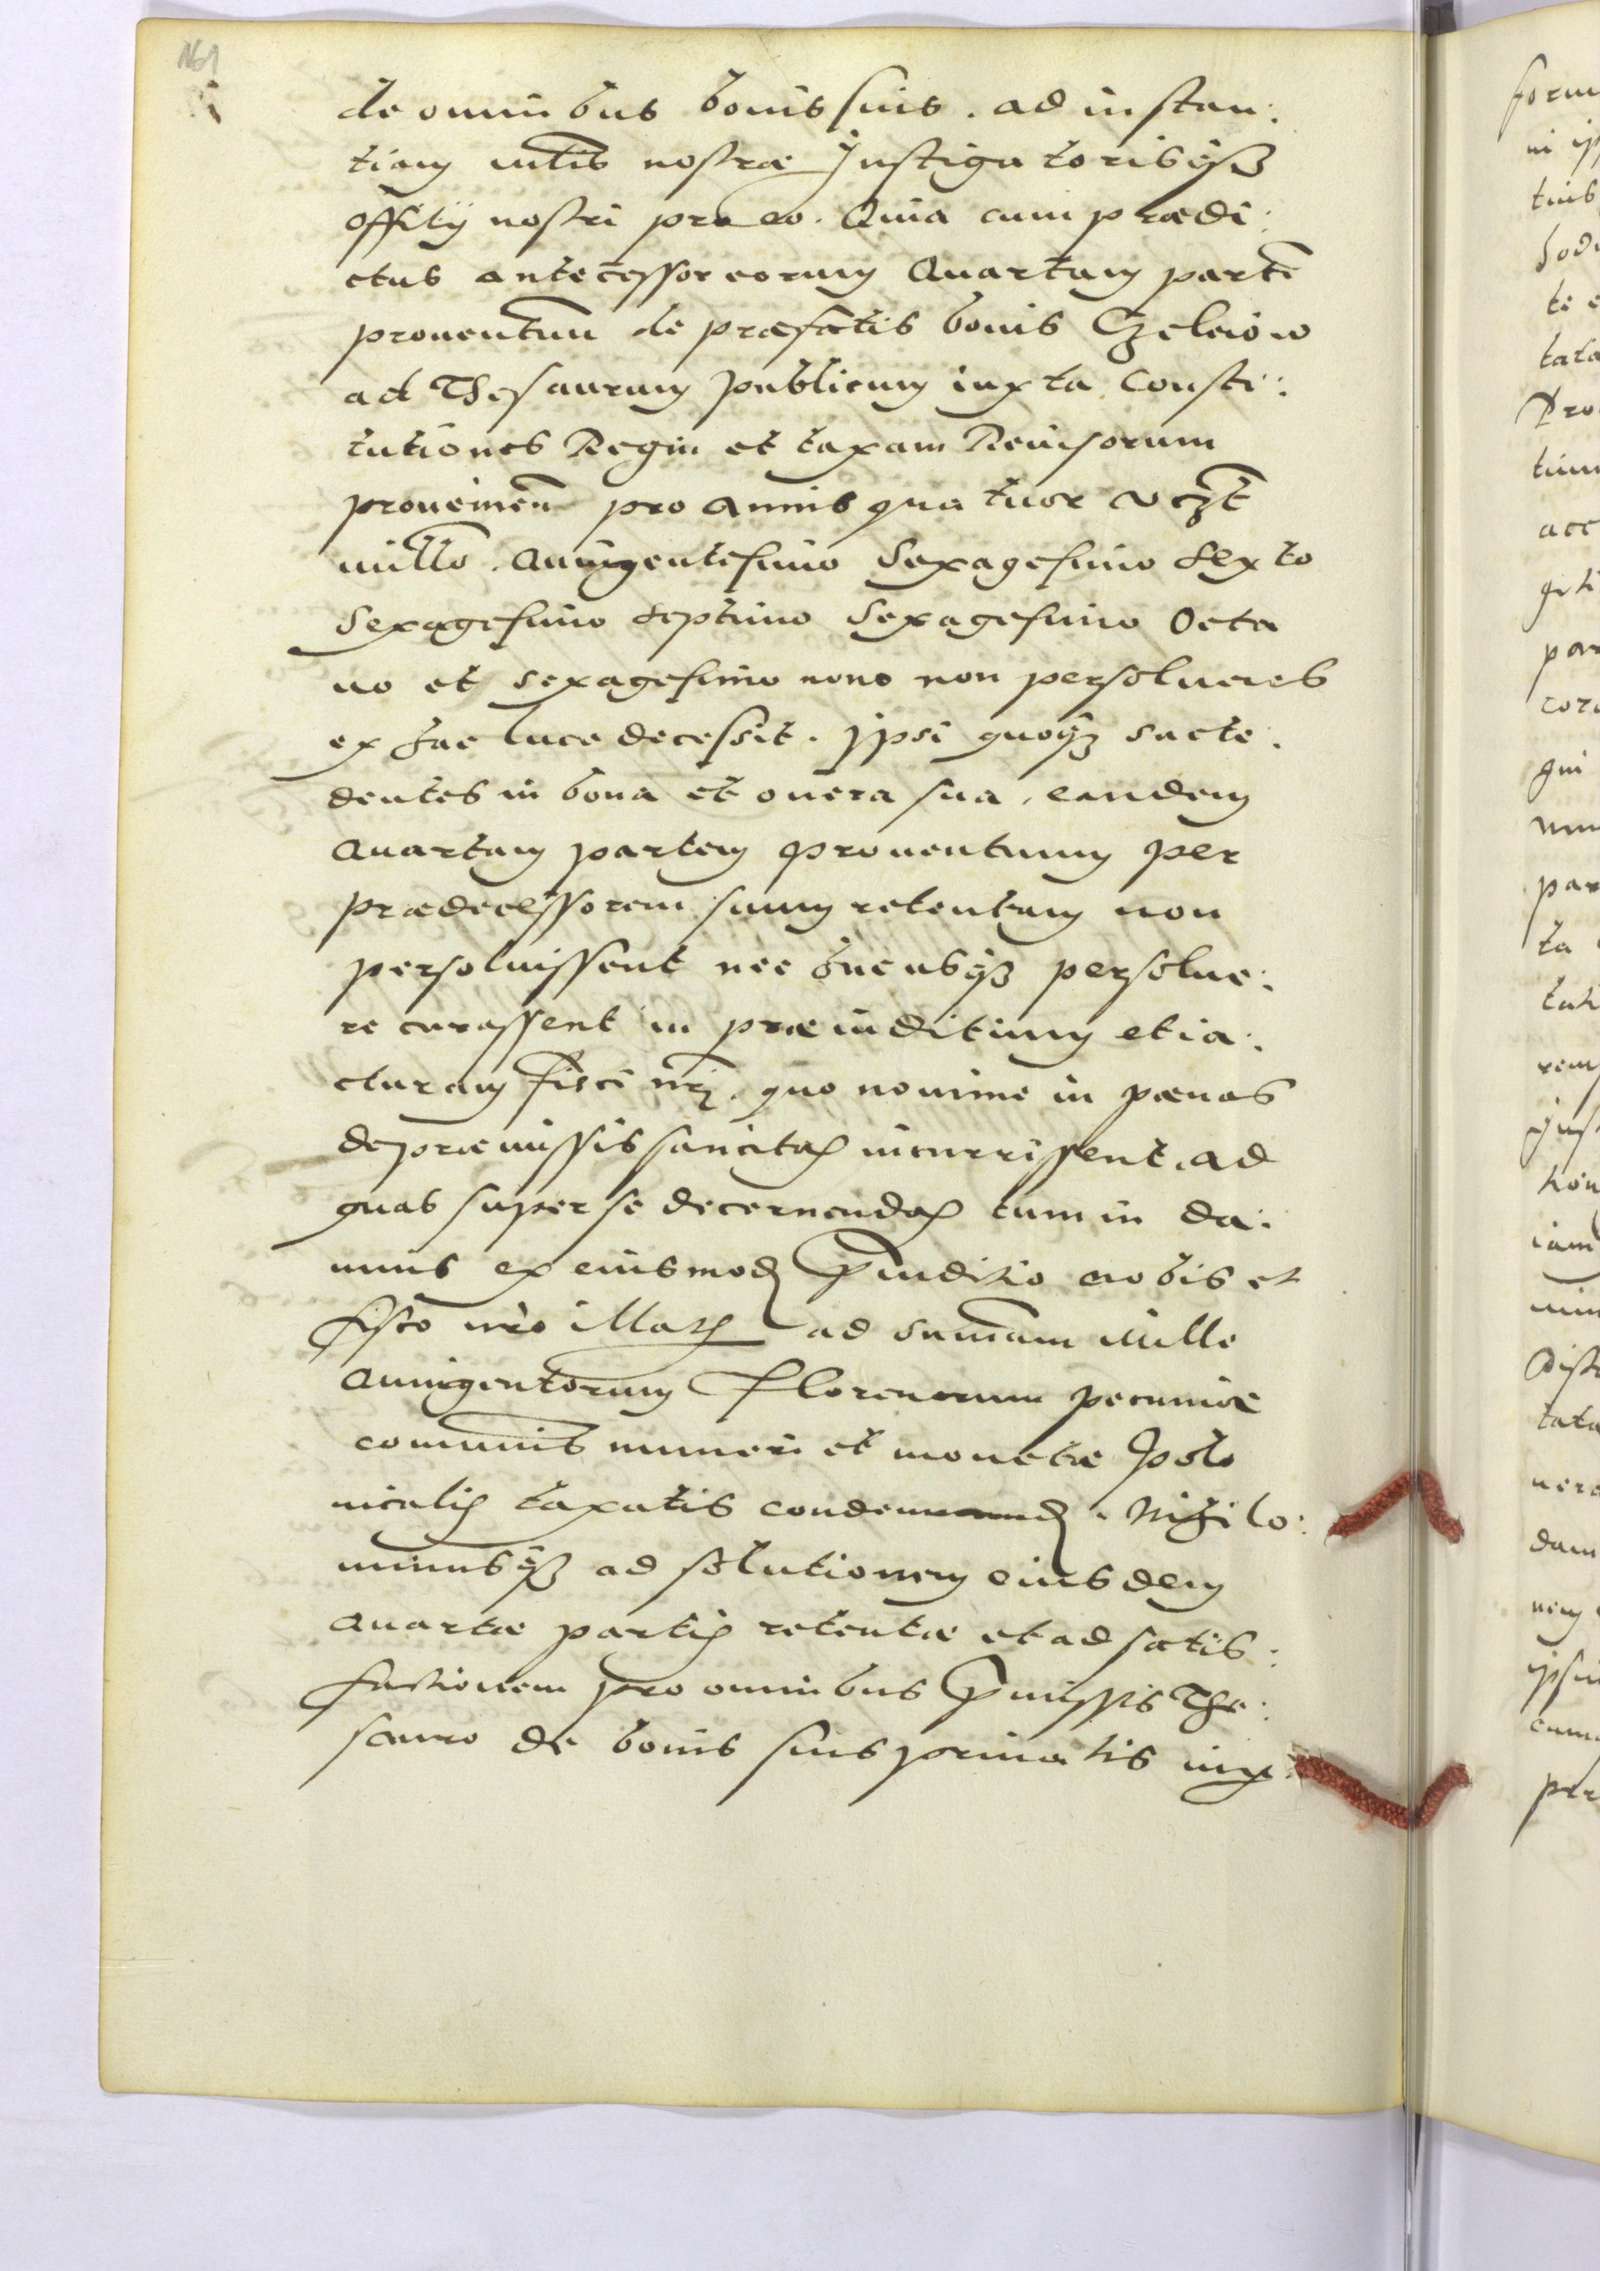 161
de omnibus bonis suis. ad instan:
tiam mtis nostræ Instigatorisq3
offitij nostri pro eo. Quia cum prædi:
ctus antecessor eorum Quartam parte
prouentuu de præfatis bonis Czeleiow
ad Thesaurum publicum iuxta Consti:
tutiones Regni et taxam Reuisorum
prouenien pro annis quatuor vczt
millo Quingentesimo Sexagesimo Sexto
Sexagesimo septimo Sexagesimo Octa
uo et sexagesimo nono non persolueres
ex hac luce decessit. Ipsi quoq3 succe:
dentes in bona et onera sua, eandem
Quartam partem prouentuum per
prædecessorem suum retentam non
persoluissent nec hucusq3 persolue:
re curassent in præiuditium et ia:
cturam fisci nri, quo nomine in pænas
de præmissis sancitas incurrissent. ad
quas super se decernendas tum in da:
mnis ex eiusmodi Pjuditio nobis et
fisco nro illatis ad summam mille
Quingentorum Florenorum pecuniæ
communis numeri et monetæ Polo
nicalis taxatis condemnand. Nihilo:
minusq3 ad solutionem eiusdem
Quartæ partis retentæ et ad satis:
factionem pro omnibus Pmissis The:
sauro de bonis suis priuatis iux